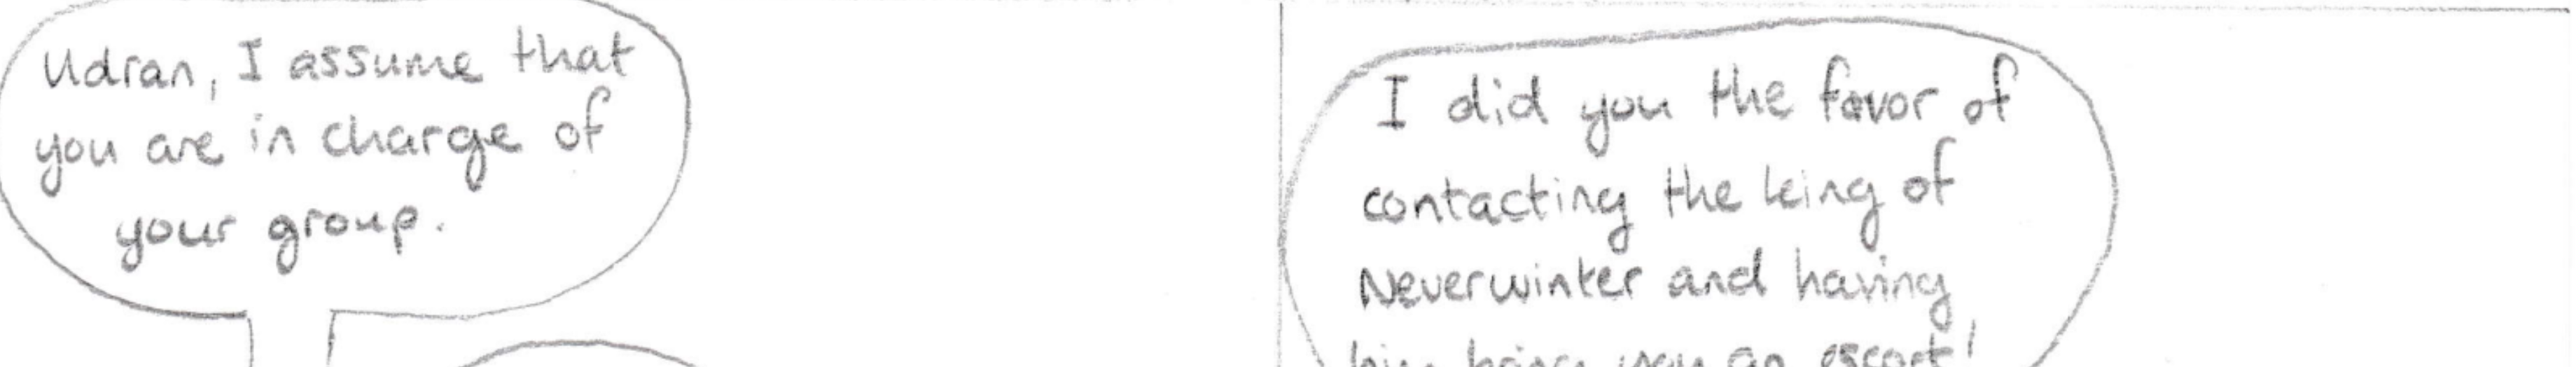 Udran, I assume that
you are in charge of
your group.
I did you the favor of
contacting the king of
Neverwinter and having
him bring you an escort!